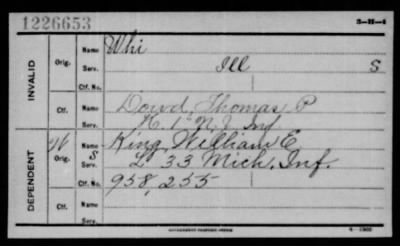 1226653
3-H-4
INVALID
Orig.
Name Whi
Serv. Ill S
Ctf. No.
Ctf.
Name Dowd, Thomas P
Serv. K. 1 N.Y. Inf
DEPENDENT
Orig.
Name King, William E
Serv. L. 33 Mich. Inf.
Ctf. No. 958,255
Ctf.
Name
Serv.